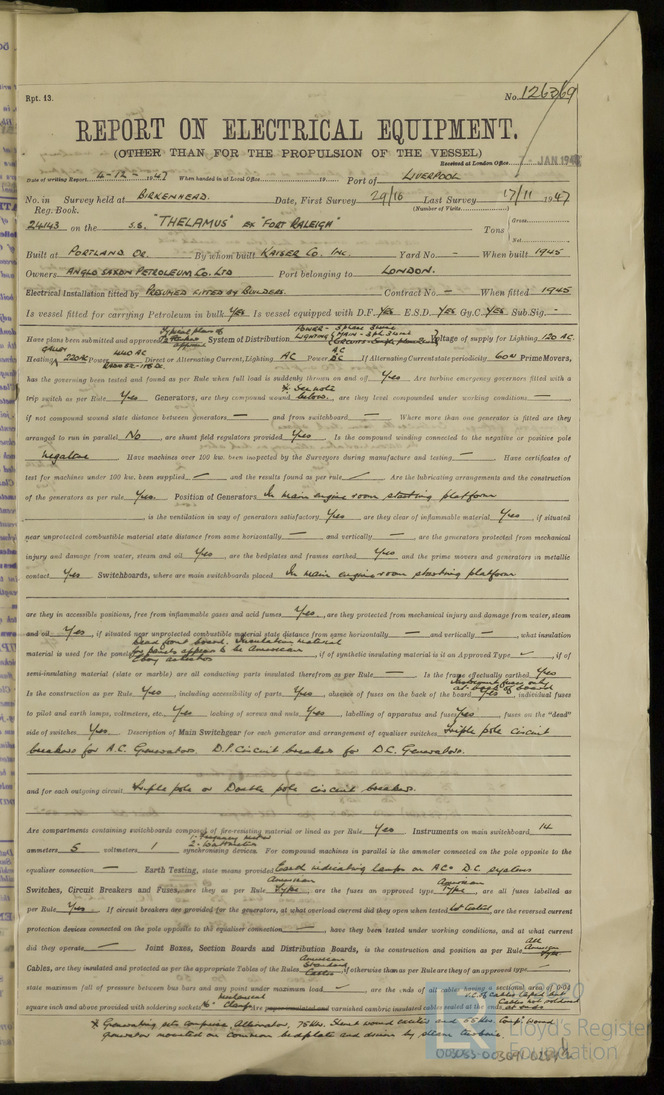 Rpt. 13.
No. 126369
REPORT ON ELECTRICAL EQUIPMENT.
(OTHER THAN FOR THE PROPULSION OF THE VESSEL)
Received at London Office
JAN 194
Date of writing Report 4-12-1947 When handed in at Local Office 19 Port of LIVERPOOL
No. in Survey held at BIRKENHEAD. Date, First Survey 29/10 Last Survey 17/11 1947
Reg. Book. (Number of Visits)
24143 on the s.s. "THELAMUS" ex "FORT RALEIGH" Tons Gross
Net
Built at PORTLAND OR. By whom built KAISER CO. INC. Yard No. — When built 1945
Owners ANGLO SAXON PETROLEUM CO. LTD Port belonging to LONDON.
Electrical Installation fitted by PRESUMED FITTED BY BUILDERS. Contract No. — When fitted 1945
Is vessel fitted for carrying Petroleum in bulk YES Is vessel equipped with D.F. YES E.S.D. YES Gy.C. YES Sub.Sig. -
Have plans been submitted and approved System of Distribution Voltage of supply for Lighting 120 AC.
Heating 220 AC Power 440 AC Direct or Alternating Current, Lighting AC Power AC DC If Alternating Current state periodicity 60 Prime Movers,
has the governing been tested and found as per Rule when full load is suddenly thrown on and off Yes Are turbine emergency governors fitted with a
trip switch as per Rule Yes Generators, are they compound wound * See note below, are they level compounded under working conditions —
if not compound wound state distance between generators — and from switchboard — Where more than one generator is fitted are they
arranged to run in parallel No, are shunt field regulators provided Yes Is the compound winding connected to the negative or positive pole
Negative Have machines over 100 kw. been inspected by the Surveyors during manufacture and testing — Have certificates of
test for machines under 100 kw. been supplied — and the results found as per rule Are the lubricating arrangements and the construction
of the generators as per rule Yes. Position of Generators In main engine room starting platform
, is the ventilation in way of generators satisfactory Yes, are they clear of inflammable material Yes, if situated
near unprotected combustible material state distance from same horizontally — and vertically —, are the generators protected from mechanical
injury and damage from water, steam and oil Yes, are the bedplates and frames earthed Yes and the prime movers and generators in metallic
contact Yes Switchboards, where are main switchboards placed In main engine room starting platform
are they in accessible positions, free from inflammable gases and acid fumes Yes, are they protected from mechanical injury and damage from water, steam
and oil Yes, if situated near unprotected combustible material state distance from same horizontally — and vertically —, what insulation
material is used for the panels Dead front board. Insulation material for panels appears to be American, if of synthetic insulating material is it an Approved Type, if of
semi-insulating material (slate or marble) are all conducting parts insulated therefrom as per Rule — Is the frame effectually earthed Yes
Is the construction as per Rule Yes, including accessibility of parts Yes, absence of fuses on the back of the board Yes, individual fuses
to pilot and earth lamps, voltmeters, etc. Yes locking of screws and nuts Yes, labelling of apparatus and fuses Yes, fuses on the "dead"
side of switches Yes Description of Main Switchgear for each generator and arrangement of equaliser switches Triple pole circuit
breakers for A.C. Generators. D.P. Circuit breakers for D.C. Generators.
and for each outgoing circuit Triple pole or Double pole circuit breakers.
Are compartments containing switchboards composed of fire-resisting material or lined as per Rule Yes Instruments on main switchboard 14
ammeters 5 voltmeters 1 synchronising devices. For compound machines in parallel is the ammeter connected on the pole opposite to the
equaliser connection — Earth Testing, state means provided Earth indicating lamps on AC + DC systems
Switches, Circuit Breakers and Fuses, are they as per Rule American Type, are the fuses an approved type American Type, are all fuses labelled as
per Rule Yes If circuit breakers are provided for the generators, at what overload current did they open when tested Not tested, are the reversed current
protection devices connected on the pole opposite to the equaliser connection —, have they been tested under working conditions, and at what current
did they operate — Joint Boxes, Section Boards and Distribution Boards, is the construction and position as per Rule All American type
Cables, are they insulated and protected as per the appropriate Tables of the Rules American Standard Cables, if otherwise than as per Rule are they of an approved type —
state maximum fall of pressure between bus bars and any point under maximum load, are the ends of all cables having a sectional area of 0.04
square inch and above provided with soldering sockets No mechanical Clamps Are paper insulated and varnished cambric insulated cables sealed at the ends
* Generating sets comprise Alternator, 75 Kw. Shunt wound exciter and 55 Kw. Comp. wound
generator mounted on common bedplate and driven by steam turbine.
Lloyd's Register
Foundation